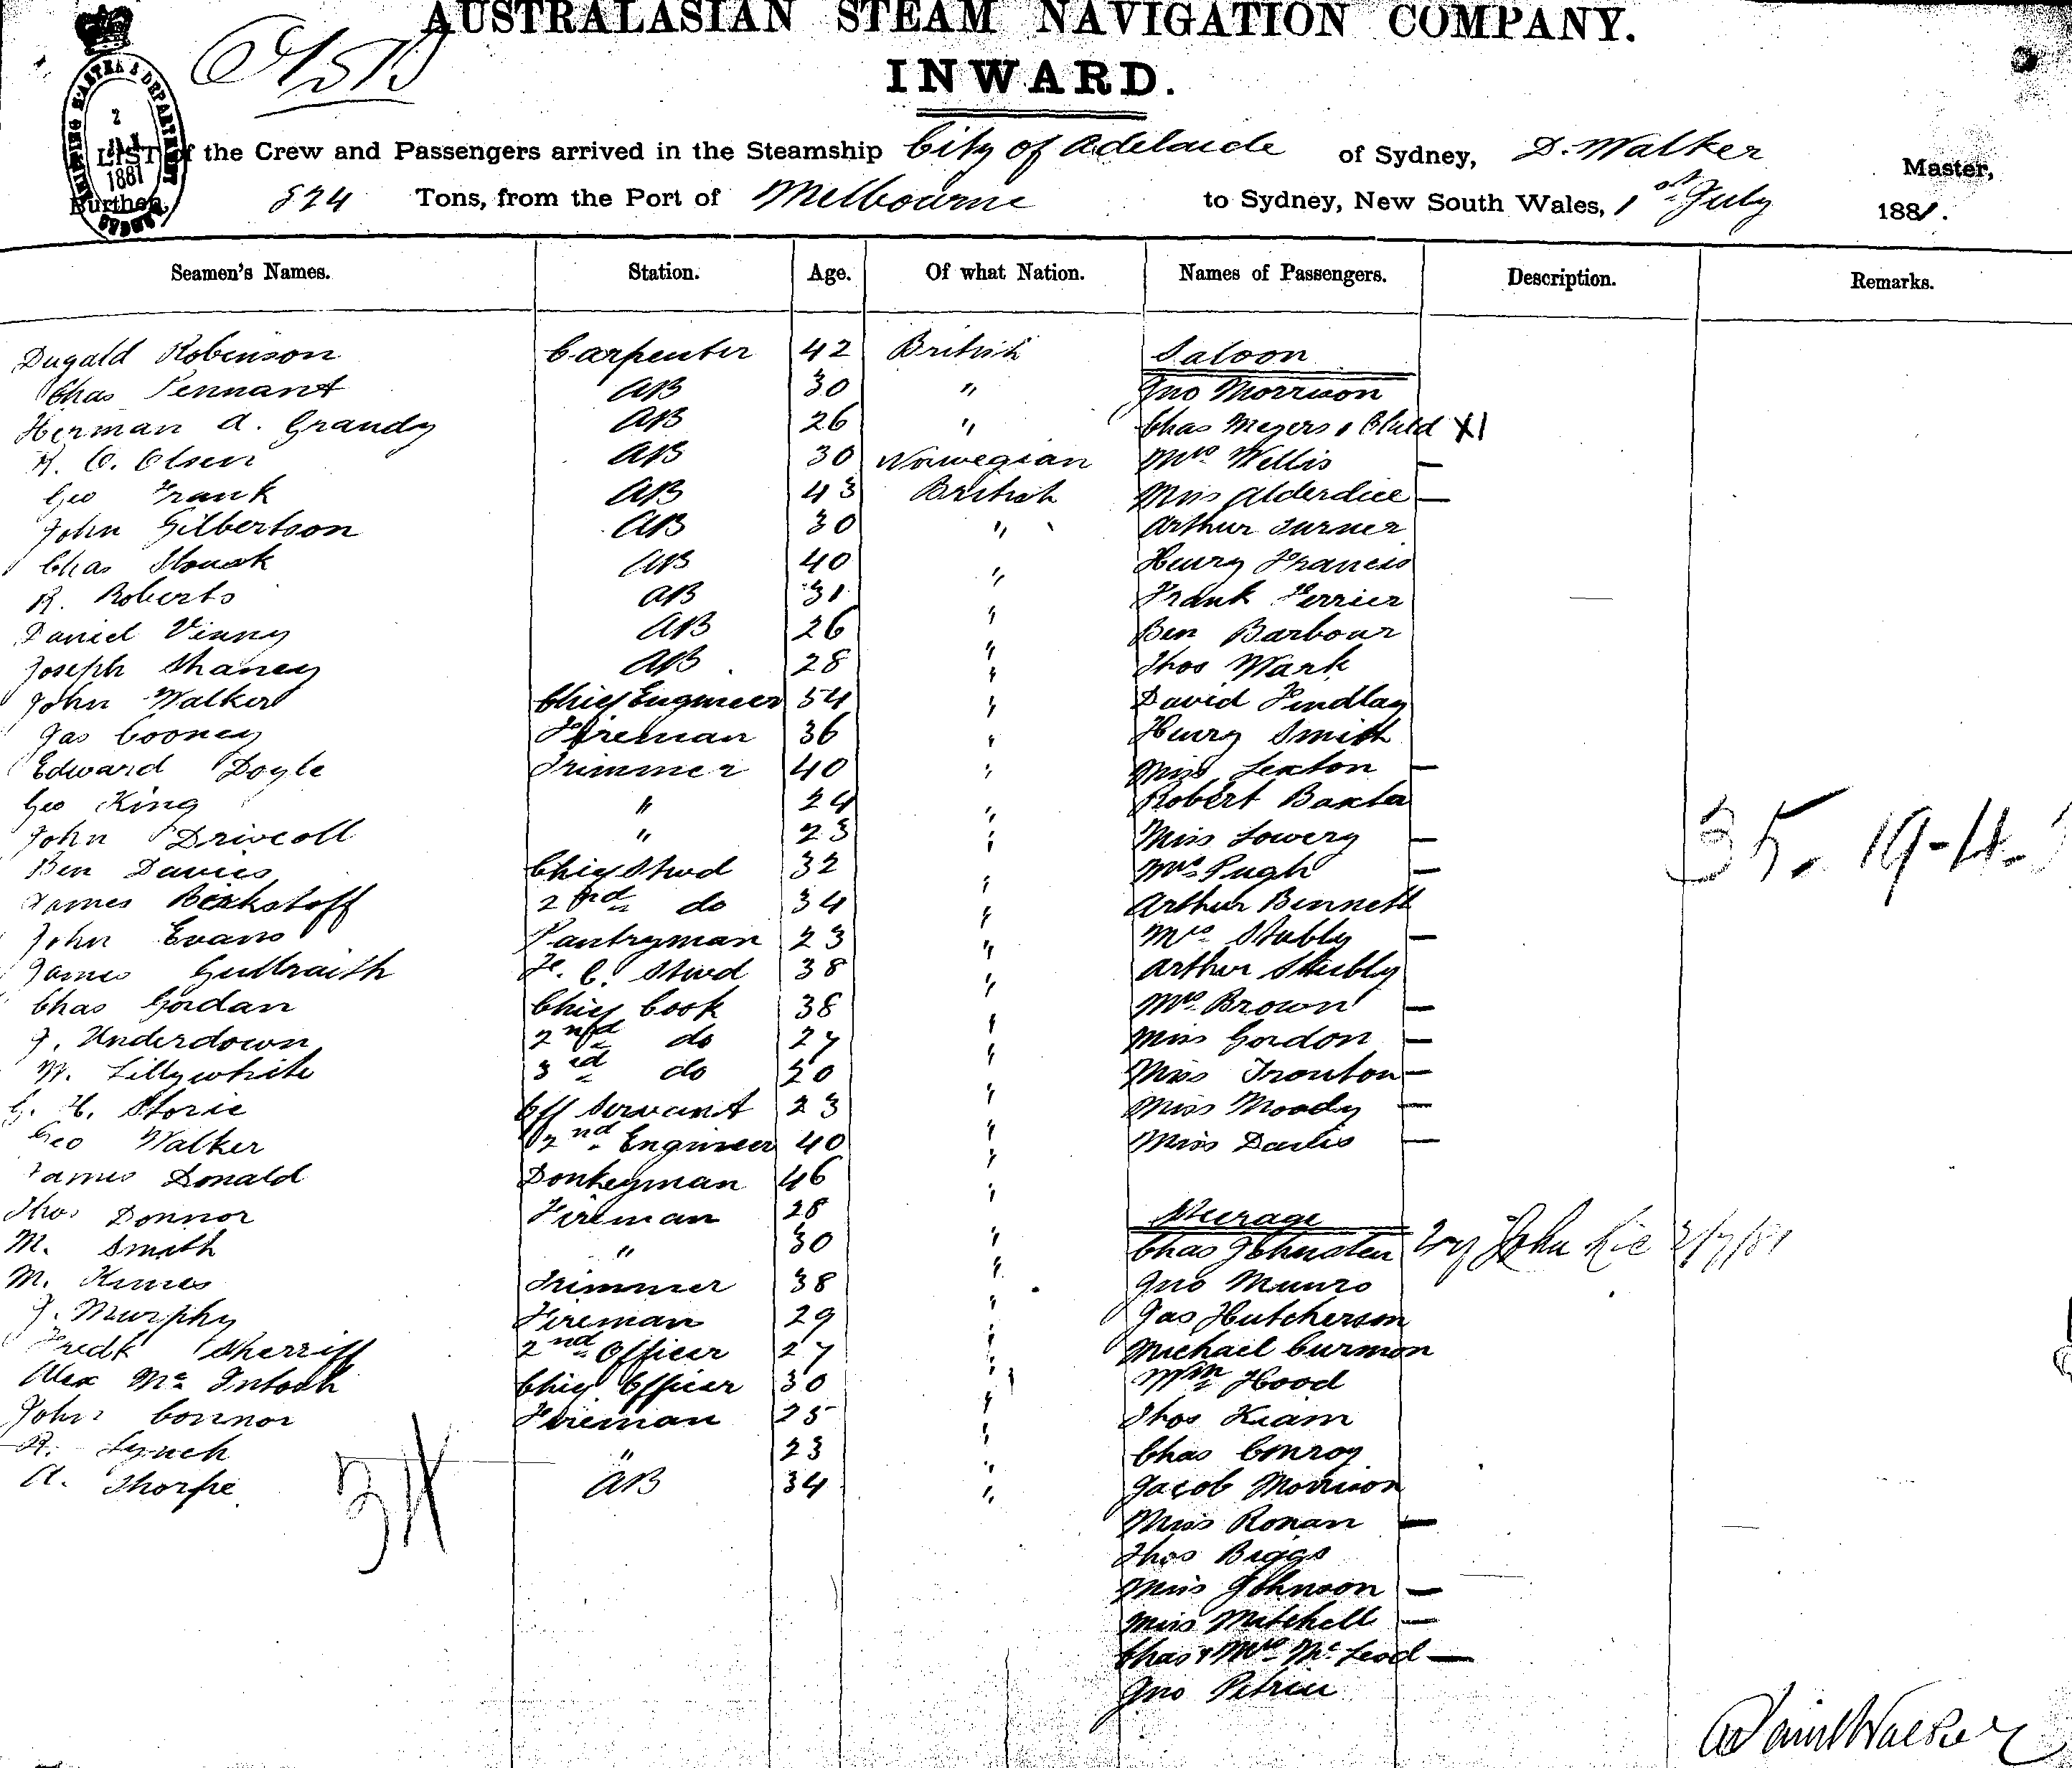 AUSTRALASIAN STEAM NAVIGATION COMPANY.
INWARD.
SHIPPING MASTER'S DEPARTMENT
2
1881
SYDNEY
LIST of the Crew and Passengers arrived in the Steamship City of Adelaide of Sydney, D. Walker Master,
Burthen, 824 Tons, from the Port of Melbourne to Sydney, New South Wales, 1st July 1881.
Seamen's Names. Station. Age. Of what Nation. Names of Passengers. Description. Remarks.
Dugald Robinson Carpenter 42 British Saloon
Chas Tennant AB 30 " Jno Morrison
Herman A. Grandy AB 26 " Chas Meyers & Child X1
R. O. Olsen AB 30 Norwegian Mrs Willis —
Geo Frank AB 43 British Miss Alderdice —
John Gilbertson AB 30 " Arthur Turner
Chas AB 40 " Henry Francis
R. Roberts AB 31 " Frank Ferrier
Daniel Vinny AB 26 " Ben Barbour
Joseph Shaney AB 28 " Thos Wark
John Walker Chief Engineer 54 " David Findlay
Jas Cooney Fireman 36 " Henry Smith
Edward Doyle Trimmer 40 " Miss Sexton —
Geo King " 24 " Robert Baxter
John Driscoll " 23 " Miss Lowery —
Ben Davies Chief Stwd 32 " Mrs Pugh —
James Bickstoff 2nd do 34 " Arthur Bennett
John Evans Pantryman 23 " Mrs Stubly —
James Gullraith F. C. Stwd 38 " Arthur Stubly
Chas Gordan Chief Cook 38 " Mrs Brown —
J. Underdown 2nd do 27 " Miss Gordon —
W. Lillywhite 3rd do 20 " Miss Trouton —
G. H. Storie Off Servant 23 " Miss Moody —
Geo Walker 2nd Engineer 40 " Miss Davis —
James Donald Donkeyman 46 "
Thos Donnor Fireman 28 " Steerage
M. Smith " 30 " Chas Johnston John 2/7/81
M. Kimes Trimmer 38 " Jno Munro
J. Murphy Fireman 29 " Jas Hutcherson
Fredk Sherriff 2nd Officer 27 " Michael Curmon
Alex Mc Intosh Chief Officer 30 " Wm Hood
John Connor Fireman 25 " Thos Kiam
R. Lynch " 23 " Chas Conroy
A. Thorpe AB 34 " Jacob Morrison
34
Miss Ronan —
Thos Biggs
Miss Johnson —
Miss Mitchell —
Chas & Mrs McLeod —
Jno Petrie
35. 19-4.
Walker